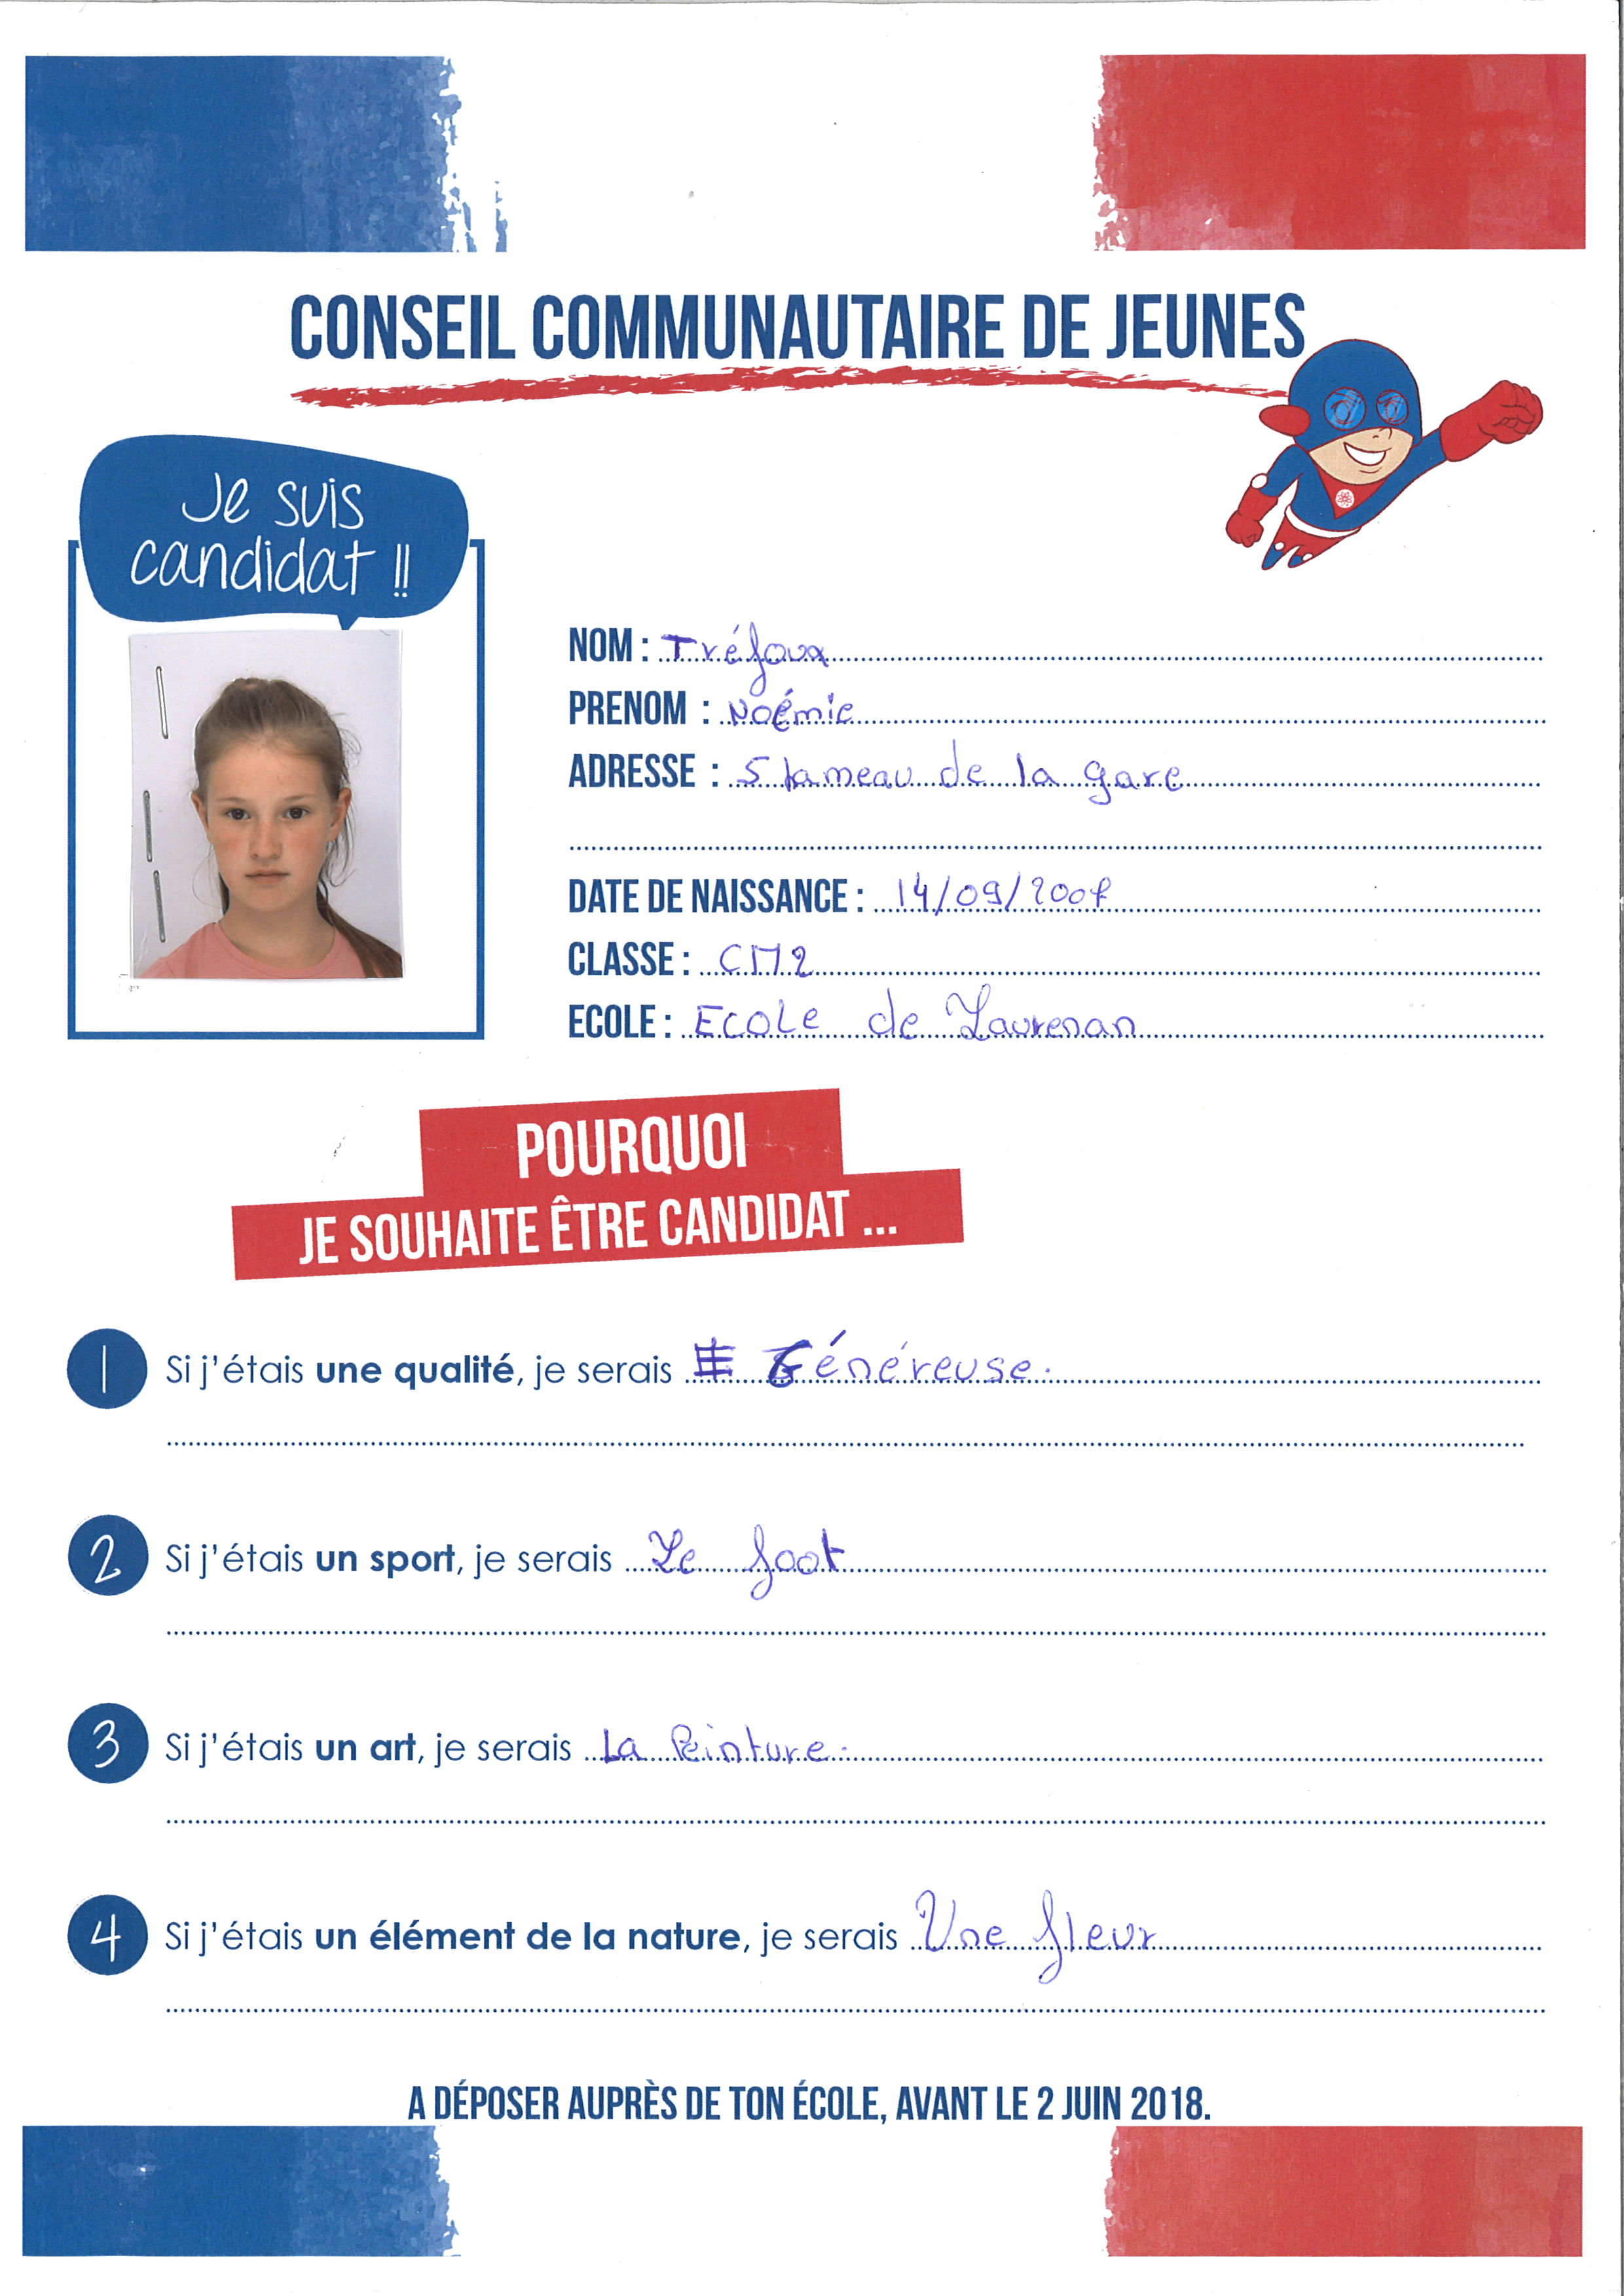 CONSEIL COMMUNAUTAIRE DE JEUNES
Je suis
candidat !!
NOM : Tréfoux
PRENOM : Noémie
ADRESSE : 5 hameau de la gare
DATE DE NAISSANCE : 14/09/200
CLASSE : CM2
ECOLE : Ecole de Laurenan
POURQUOI
JE SOUHAITE ÊTRE CANDIDAT ...
1 Si j'étais une qualité, je serais Généreuse.
2 Si j'étais un sport, je serais Le foot
3 Si j'étais un art, je serais La Peinture.
4 Si j'étais un élément de la nature, je serais Une fleur
A DÉPOSER AUPRÈS DE TON ÉCOLE, AVANT LE 2 JUIN 2018.